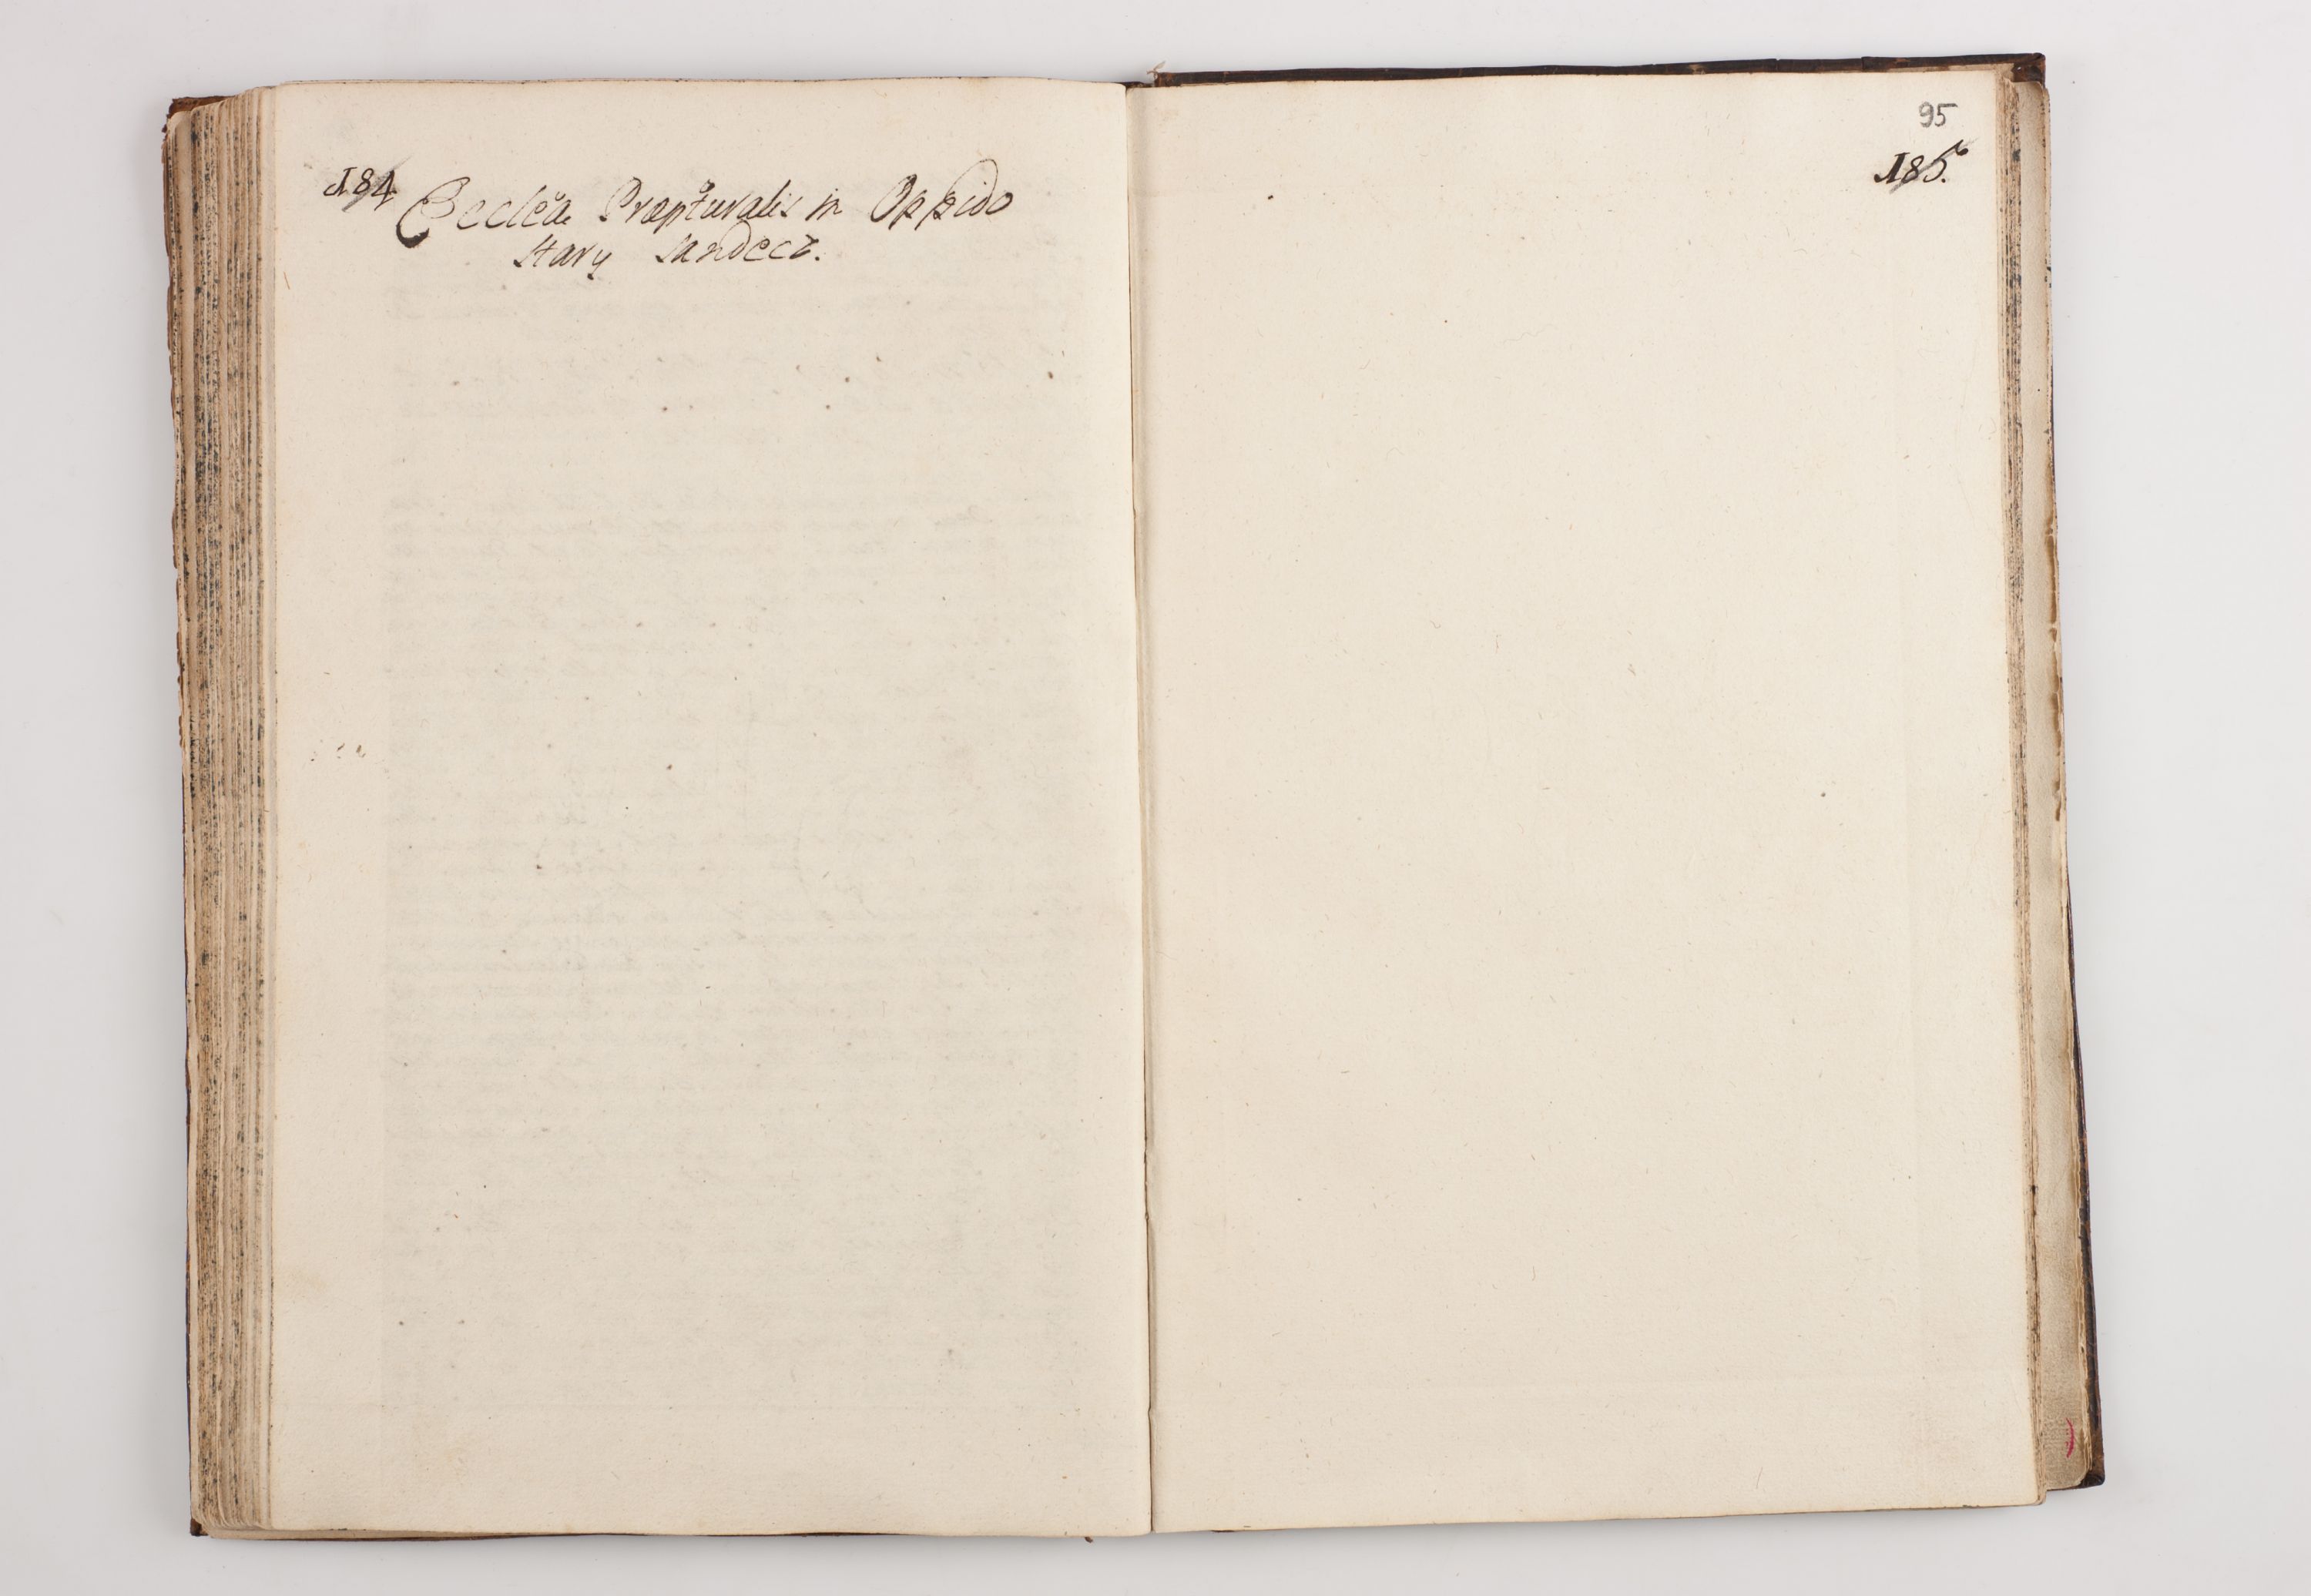 184
Eccleã Præpturalis in Oppido
Stary Sandecz.
95
185.